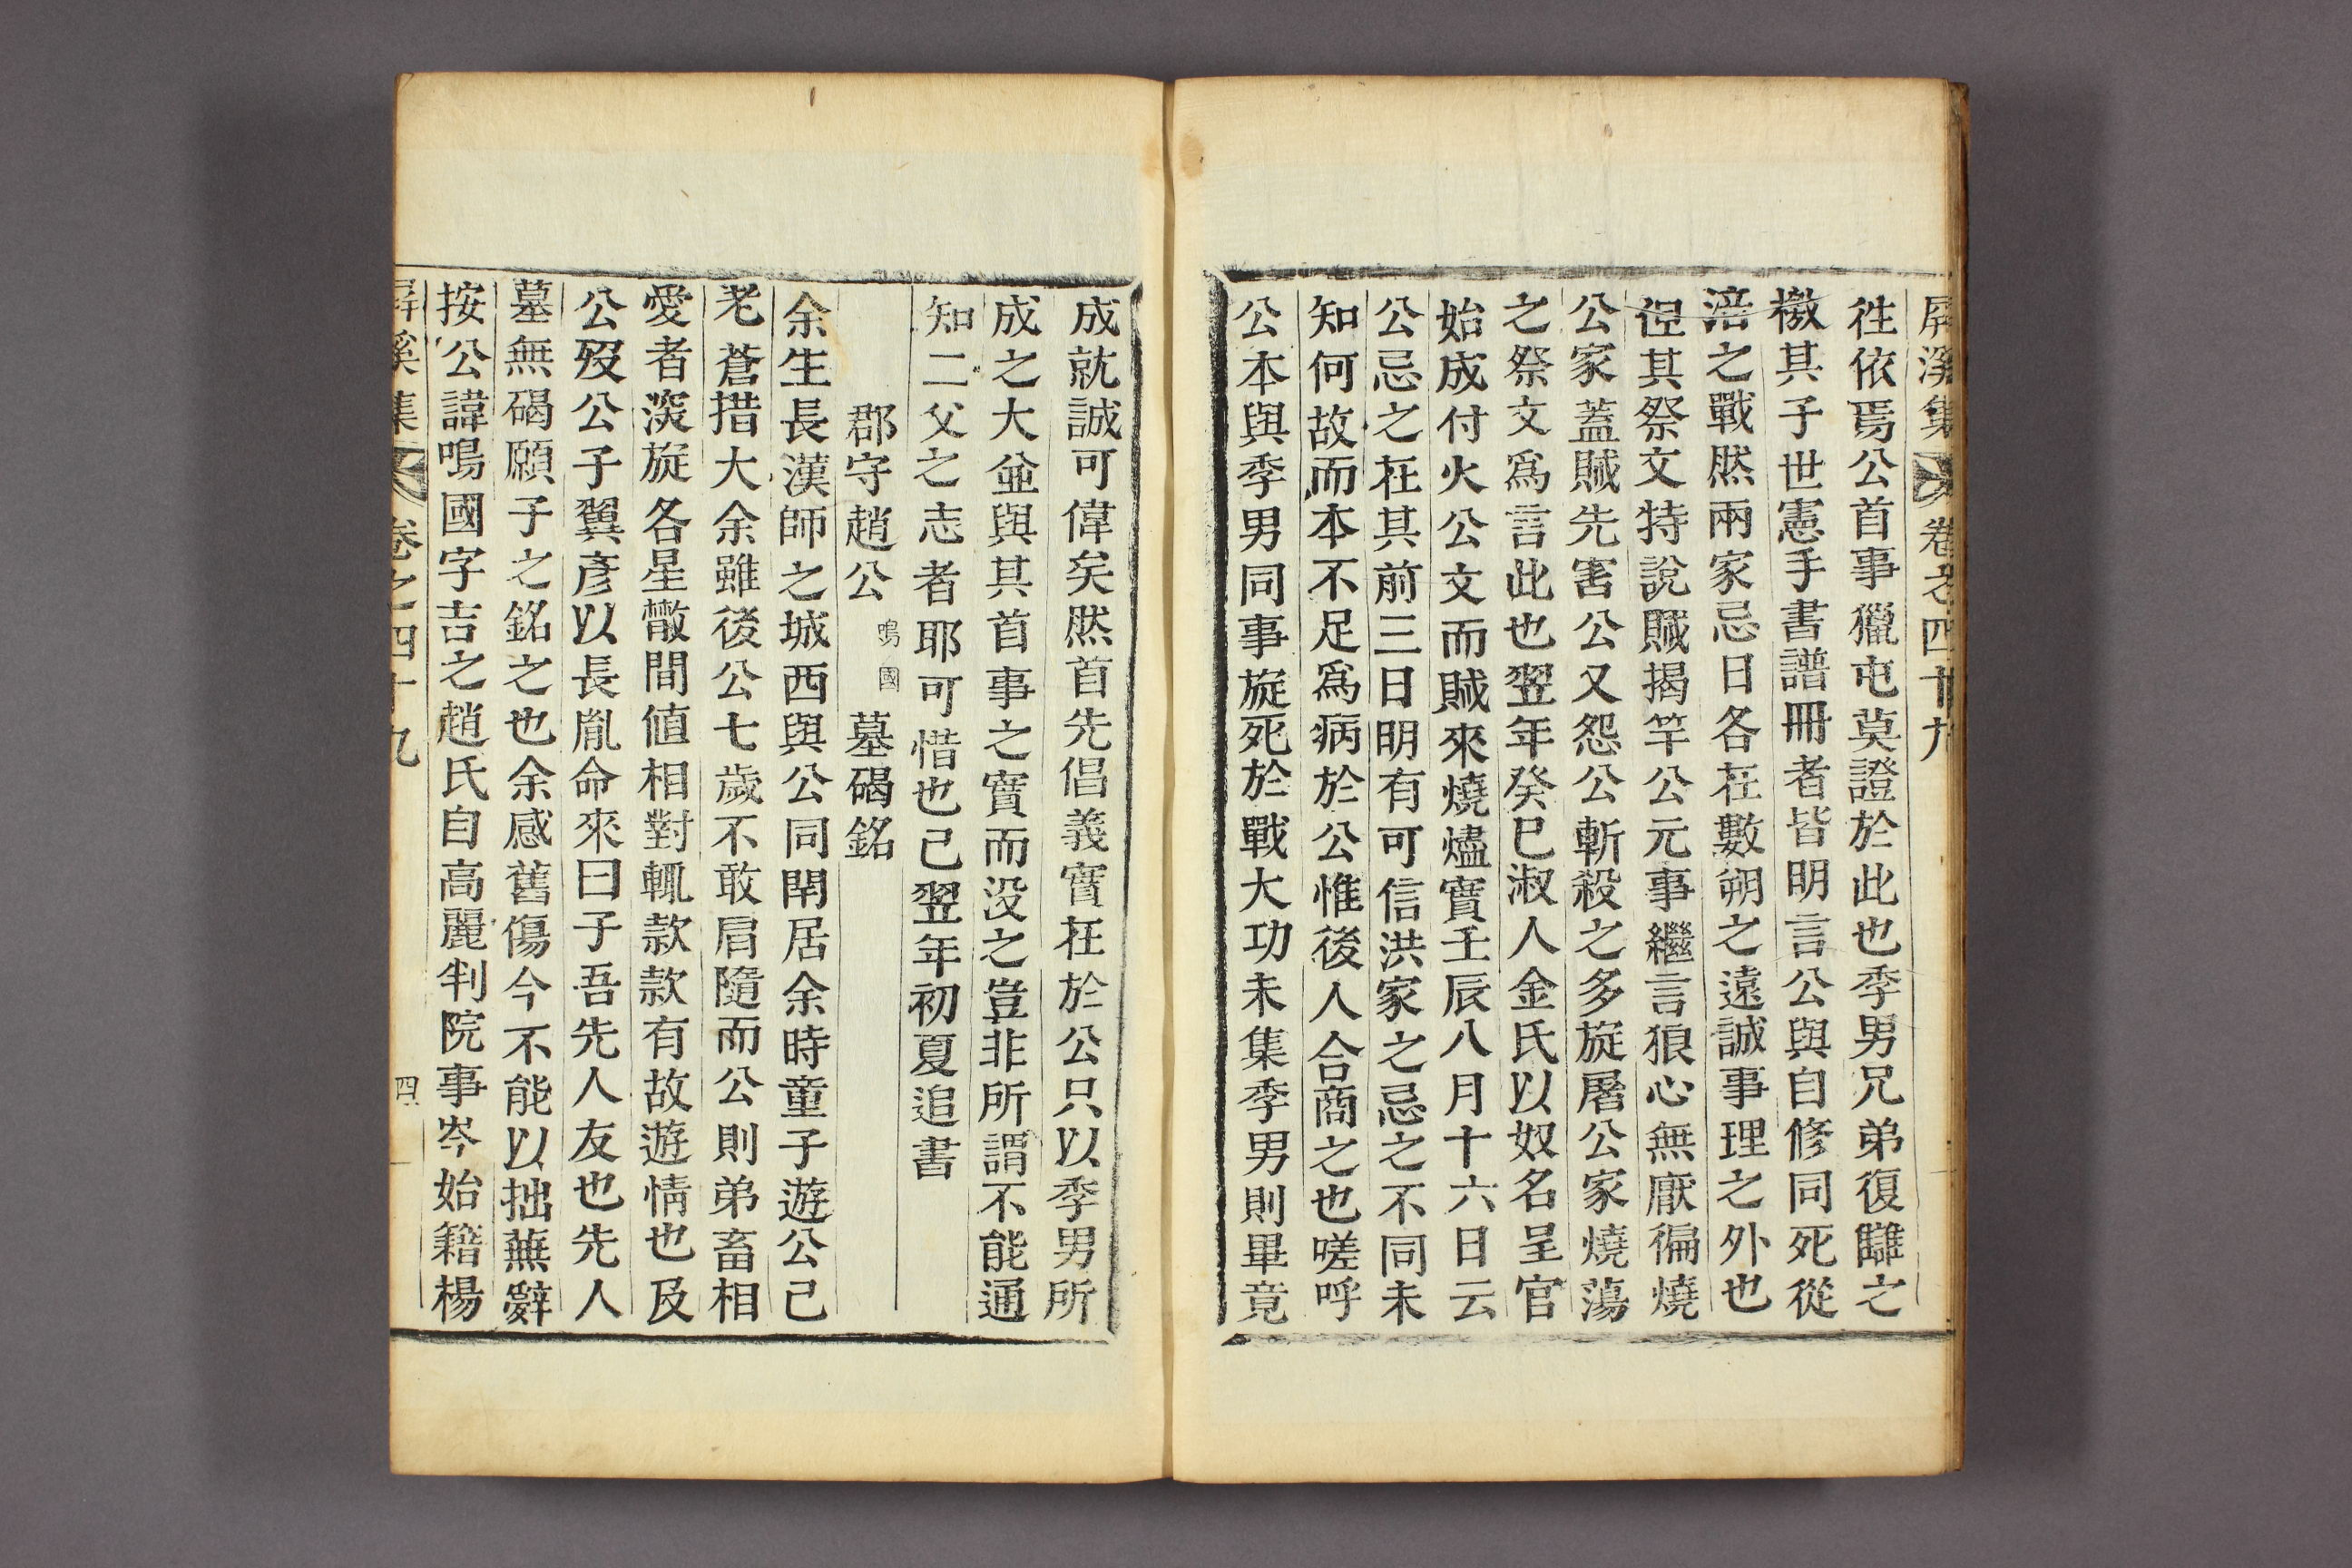 屛溪集 卷之四十九
徃依焉公首事獵屯莫證於此也季男兄弟復讎之
檄其子世憲手書譜冊者皆明言公與自修同死從
涪之戰然兩家忌日各在數朔之遠誠事理之外也
但其祭文特說賊揭竿公元事繼言狼心無厭徧燒
公家蓋賊先害公又怨公斬殺之多旋屠公家燒蕩
之祭文爲言此也翌年癸巳淑人金氏以奴名呈官
始成付火公文而賊來燒燼實壬辰八月十六日云
公忌之在其前三日明有可信洪家之忌之不同未
知何故而本不足爲病於公惟後人合商之也嗟呼
公本與季男同事旋死於戰大功未集季男則畢竟
成就誠可偉矣然首先倡義實在於公只以季男所
成之大並與其首事之實而没之豈非所謂不能通
知二父之志者耶可惜也已翌年初夏追書
郡守趙公 鳴國 墓碣銘
余生長漢師之城西與公同閈居余時童子遊公已
老蒼措大余雖後公七歲不敢肩隨而公則弟畜相
愛者深旋各星散間値相對輒款款有故遊情也及
公歿公子翼彥以長胤命來曰子吾先人友也先人
墓無碣願子之銘之也余感舊傷今不能以拙蕪辭
按公諱鳴國字吉之趙氏自高麗判院事岑始籍楊
屛溪集 卷之四十九 四